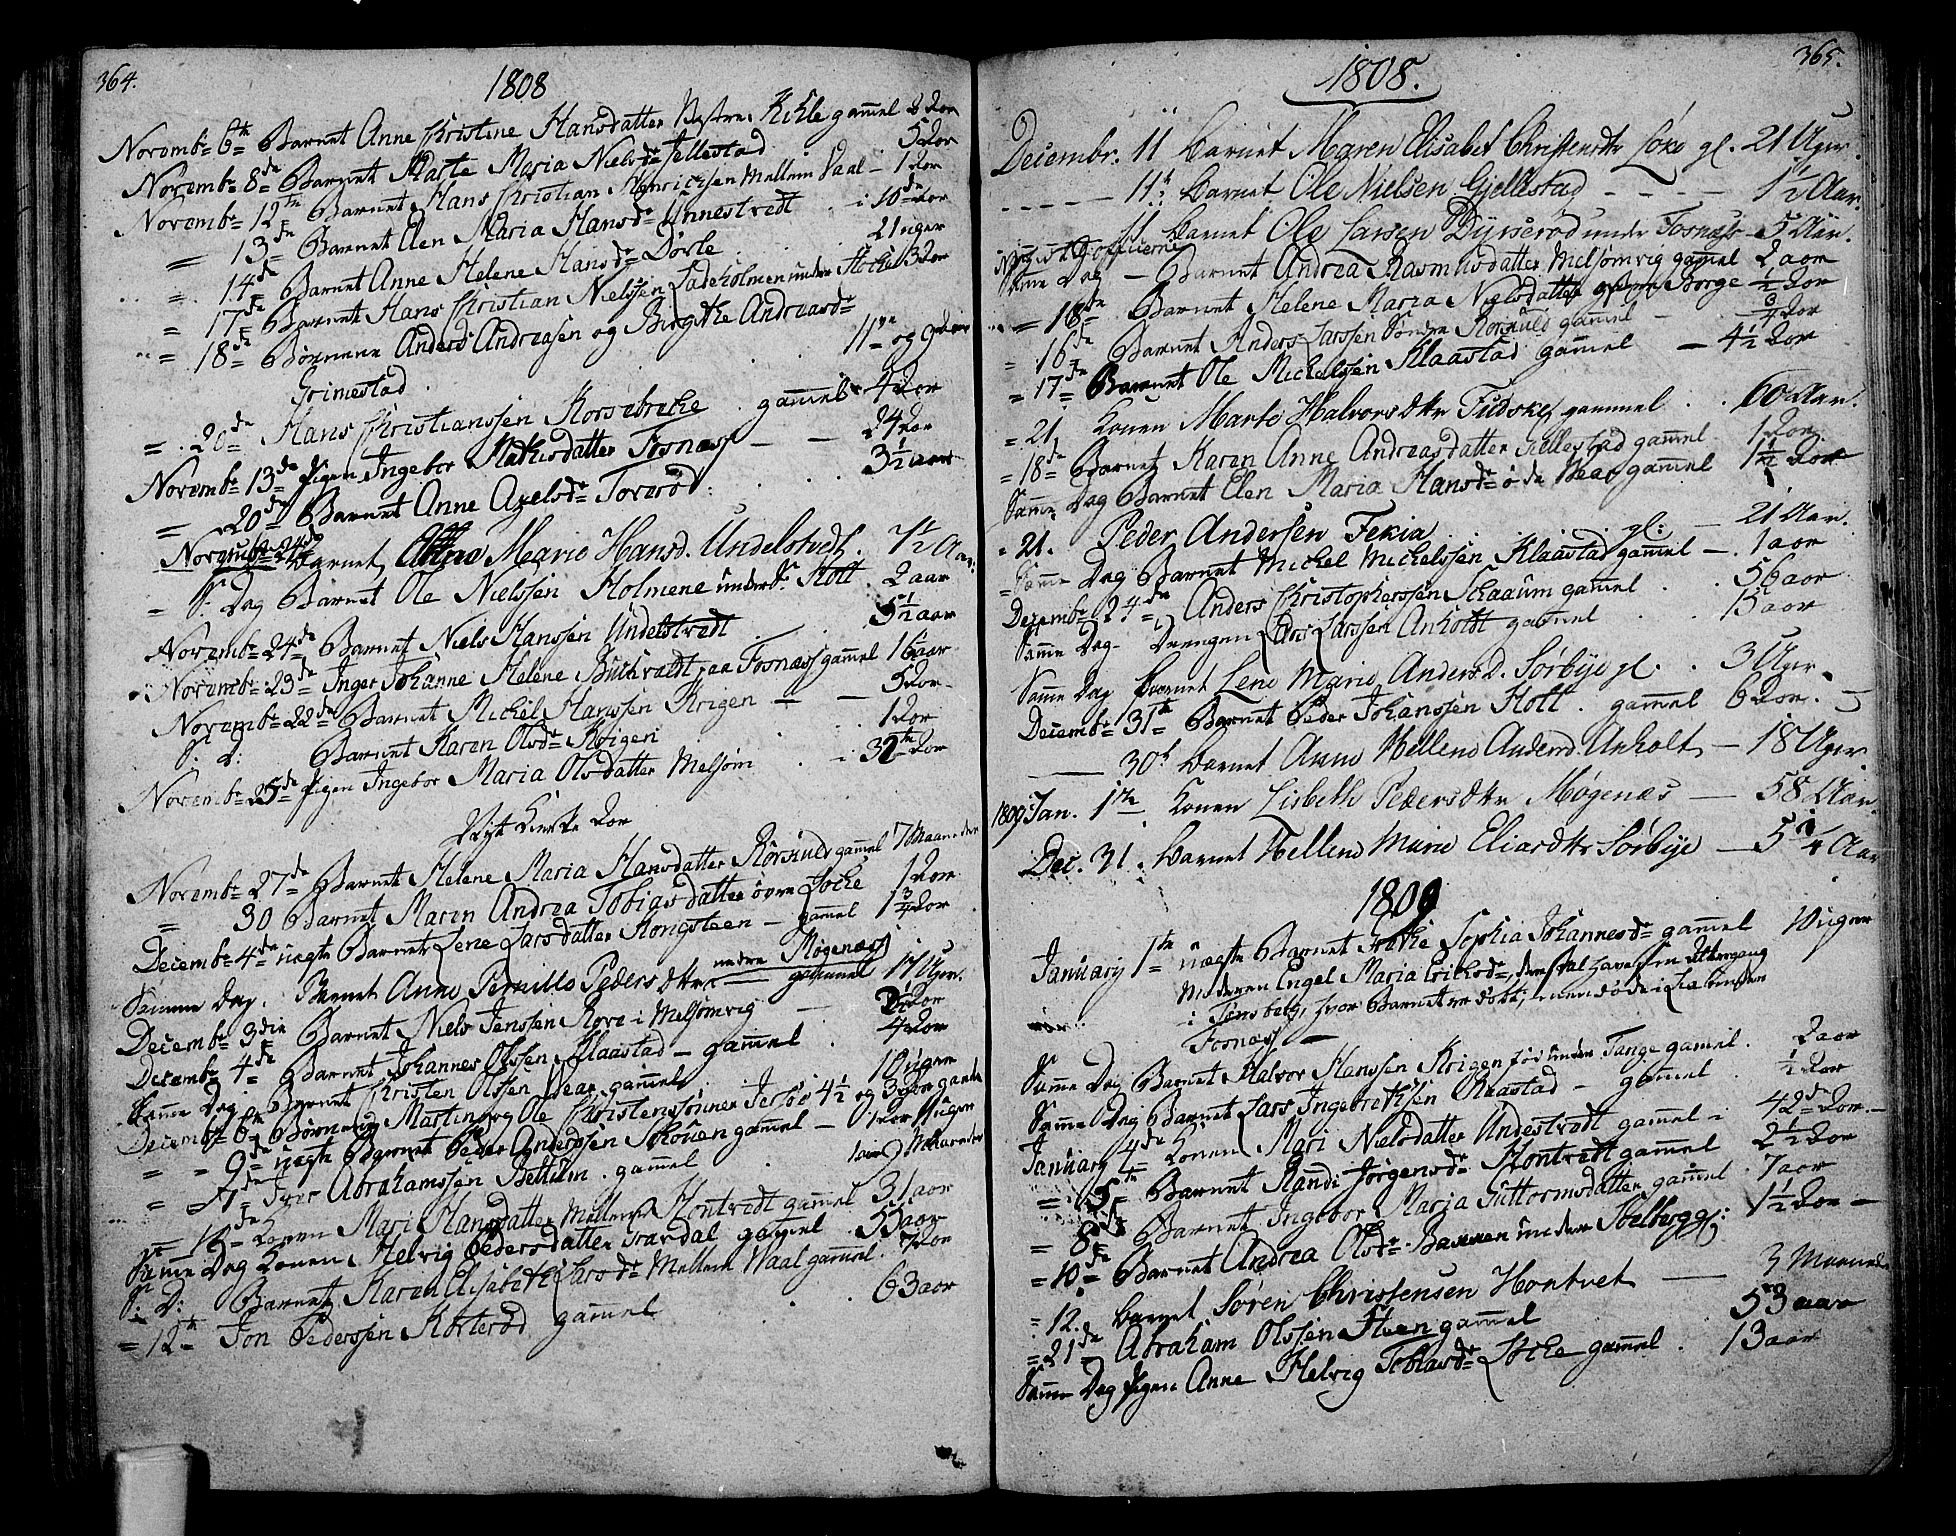 364.
1808
Novemb= 6te Barnet Anne Christine Hansdatter Vestre Kihle gamel 2 Aar
Novemb= 8de Barnet Marte Maria Nielsd= Jellestad 5 Aar
Novemb= 12te Barnet Hans Christian Henrichsen Mellem Vaal - 1 Aar
= 13de Barnet Elen Maria Hansd= Unnestvedt . . i 10de Aar
= 14de Barnet Anne Helene Hansd= Børle 21 uger
= 17de Barnet Hans Christian Nielssen Ladeholmen under 3 Aar
= 18de Børnene Anders Andreasen og Birgithe Andreasd=
Grimestad . . 11te og 9 Aar
= . 20de Hans Christianssen Korsebreke . gammel 4 Aar
Novemb= 13de Pigen Ingebor Mathisdatter Fosnæss — — 24 Aar
= 20de Barnet Anne Axelsd= Torerød . . . 3½ aar
Novemb= 24de Barnet Marie Hansd. Undelstvedt. 7½ Aar.
= S. Dag Barnet Ole Nielssen Holmene under Holt . 2 aar
Novemb= 24de Barnet Niels Hanssen Undelstvedt . . 5½ aar
Novemb= 23de Inger Johanne Helene paa Fosnæss gammel 16 aar
Novemb= 22de Barnet Michel Hanssen Krigen — — 5 Aar
S. D: Barnet Karen Olsd= Krigen . 1 Aar
Novemb= 25de Pigen Ingebor Maria Olsdatter Melsom . . i 32te Aar
Nyt Kirke Aar
Novemb= 27de Barnet Helene Maria Hansdatter gamel 7 Maaneder
= 30 Barnet Maren Andrea Tobiasdatter øvre Løcke 1 Aar
Decemb= 4de uægte Barnet Lene Larsdatter Kongsteen — gamel 1¾ Aar
Samme Dag. Barnet Anne Pernille Pedersdttr nedre Møgenæss gammel 17 Uger.
Decemb= 3die Barnet Niels Jenssen Rove i Melsomvig — Aar
Decemb= 4de Barnet Johannes Olssen Klaastad — gammel . 4 Aar
Samme Dag Barnet Christen Olssen Vear gammel . 10 uger
Decemb= 6te Børnene Martin og Ole Christenssønner Jersøe 4½ og 3 Aar gamle
= = 9de uægte Barnet Peder Anderssen Schouen gammel — 1 Aar uger
= Iver Abrahamssen Bettum . gammel . 1 aar 9 Maaneder
= 16de Konen Mari Hansdatter Mellem Hontvedt gammel 31 aar
Samme Dag Konen Helvig Pedersdatter gamel . 55 aar
S: D: Barnet Karen Elisabeth Larsd= Mellem Waal gammel. 7 Aar
= 12te Jon Pederssen Korterød gammel . . 63 aar
365.
1808.
Decembr. 11 Barnet Maren Elisabet Christensdttr Løke gl. 21 Uger.
- - - — 11te Barnet Ole Nielsen Gjellestad - - - - 1½ Aar.
11 Barnet Ole Larsen Dyrserød under Fosnæss - 5 Aar.
Samme Dag — Barnet Andrea Rasmusdatter Melsomvig gammel 2 aar
= 18de Barnet Helene Maria Nielsdatter Borge ½ Aar
= 16de Barnet Anders Larssen Søndre gammel — ¾ Aar
= 17de Barnet Ole Michelsen Klaastad gammel — 4½ Aar
= 21. Konen Marte Halvorsdttr Fudske gammel . . 60 Aar.
= 18de Barnet Karen Anne Andreasdatter Jellestad gammel 1 Aar.
Samme Dag Barnet Elen Maria Hansd= øde Vear gammel 1½ Aar
= 21. Peder Andersen Fekia gl: — 21 Aar.
= Samme Dag Barnet Michel Michelssen Klaastad gammel — . 1 aar
Decemb= 24de Anders Christopherssen Schaaum gammel . . 56 aar
Samme Dag Drengen Lars Larssen Anholdt gammel . . 15 aar
Samme Dag Barnet Lene Marie Andersd. Sørbye gl. . 3 Uger.
Decemb= 31te Barnet Peder Johanssen Holt . gammel 6 Aar.
— 30te Barnet Anne Hellene Andersd. Anholt — 18 Uger
1809 Jan. 1te Konen Lisbeth Pedersdttr Møgenæs — 58 Aar
Dec. 31. Barnet Hellene Marie Eliasdttr Sørbye — 5¼ Aar
1809
January 1te uægte Barnet Sophia Johannesd= gammel 10 uger
Moderen Engel Maria Erichsd=, skal have sin
i Tønsberg, hvor Barnet er døbt; men døde i under
Fosnæss —
Samme Dag Barnet Halvor Hanssen Krigen før under Tange gamel . 2 aar
Samme Dag Barnet Lars Ingebrethsen Klaastad — gammel ½ Aar
January 4de Konen Mari Nielsdatter Undestvedt gammel i 42de Aar. —
= 5te Barnet Randi Jørgensd= Hontvedt gammel 2½ Aar
= 8de Barnet Ingebor Maria Guttormsdatter gammel 7 aar
= 10de Barnet Andrea Olsd= under 1½ Aar —
= 12. Barnet Søren Christensen Hontvet — 3 Maaneder
= 21de Abraham Olssen Steen gammel 53 aar
Samme Dag Pigen Anne Helvig Tobiasd= Løcke gammel . 13 aar